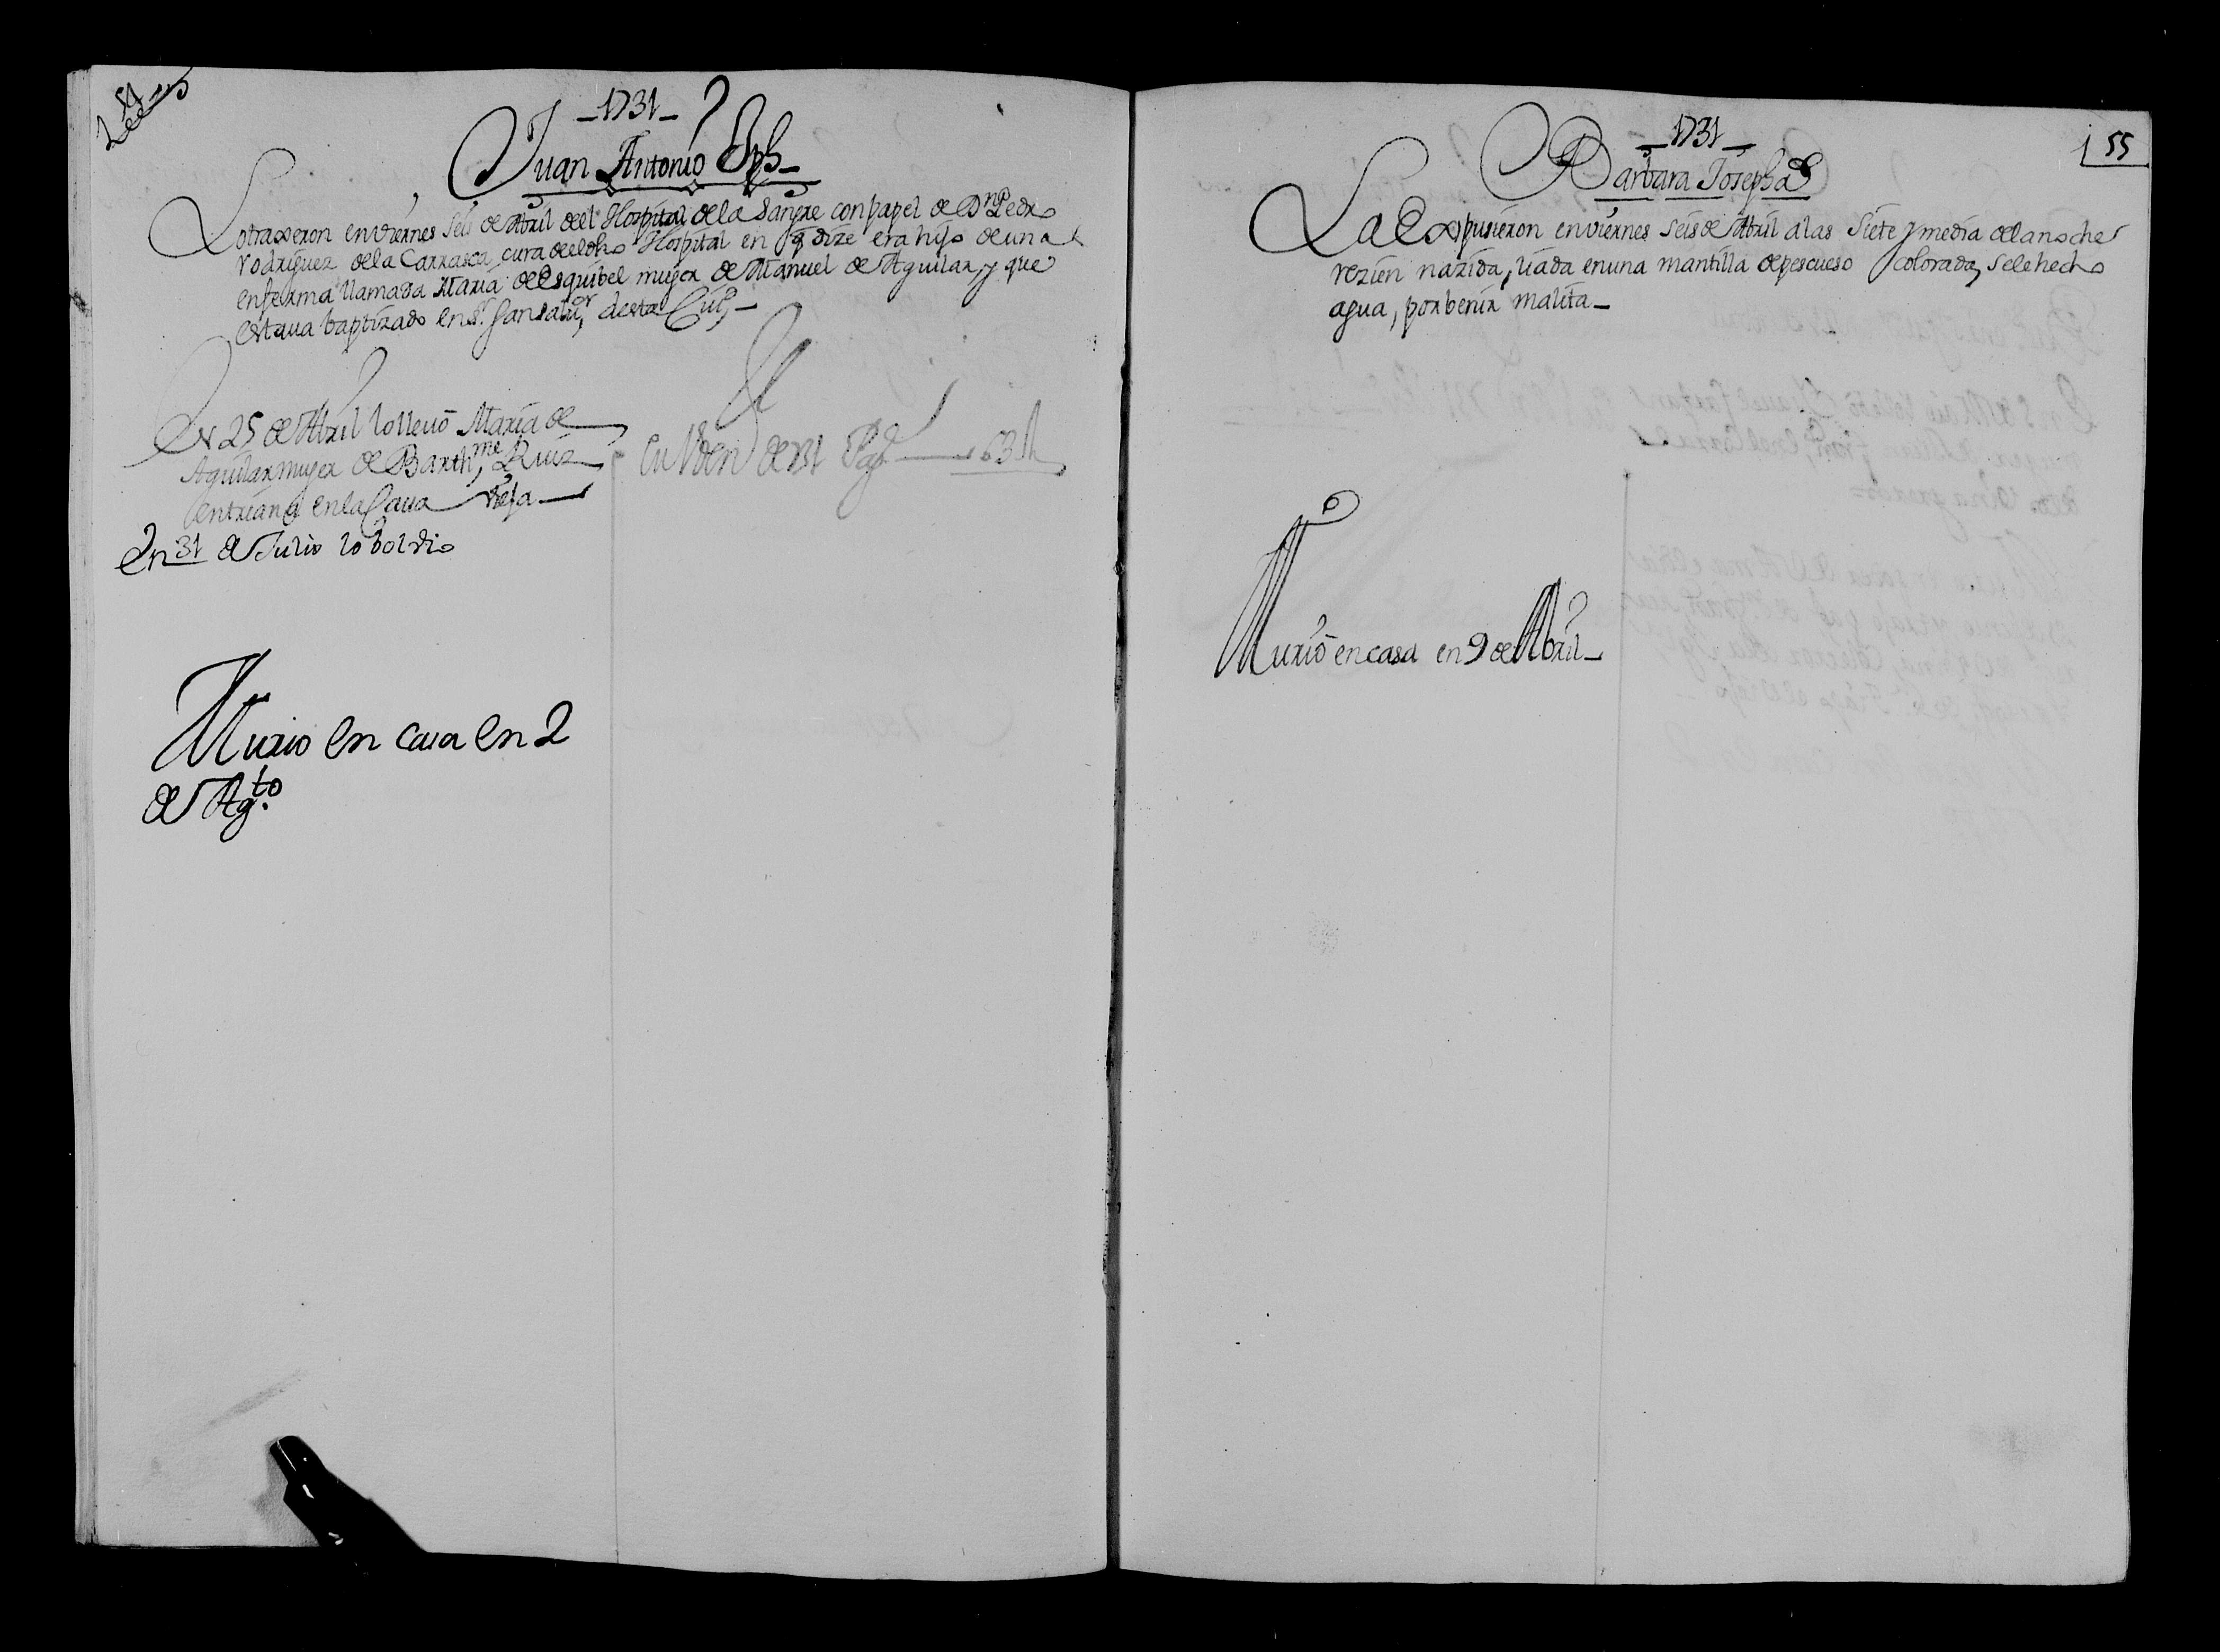 -1731-
Juan Antonio Jph-
Lo traxeron en viernes Seis de Abril deel Hospital de la Sangre con papel de Dn. Pedro
rodriguez de la Carrasca, cura de el dho Hospital en q dize era hijo de una
enferma llamada Maria de Esquibel muger de Manuel de Aguilar, y que
estava baptizado en Sr. San Salvor, de esta Ciud,-
En 25 de Abril lo llevó Maria de
Aguilar muger de Barthme, Ruiz
en triana en la Caua Vieja
En 31 de Julio lo bolvio
de 731 Pag 63
Murio en casa en 2
de Agto.
-1731-
55
Barbara Josepha
La Expusieron en viernes seis de Abril a las Siete y media de la noche
rezien nazida, liada en una mantilla de pescueso colorada, se le hecho
agua, por benir malita-
Murió en casa en 9 de Abril-